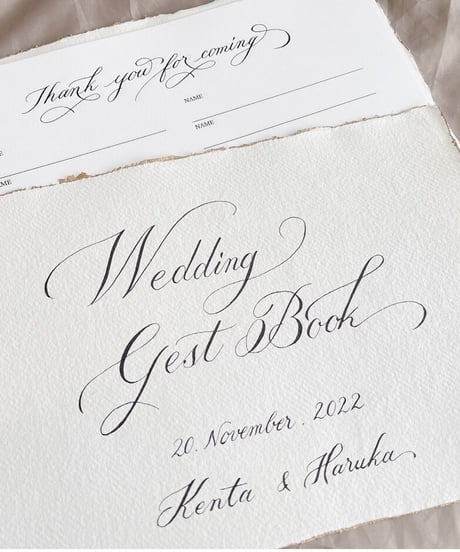 Thank you for coming
NAME
NAME
NAME
Wedding
Gest Book
20. November. 2022
Kenta & Haruka